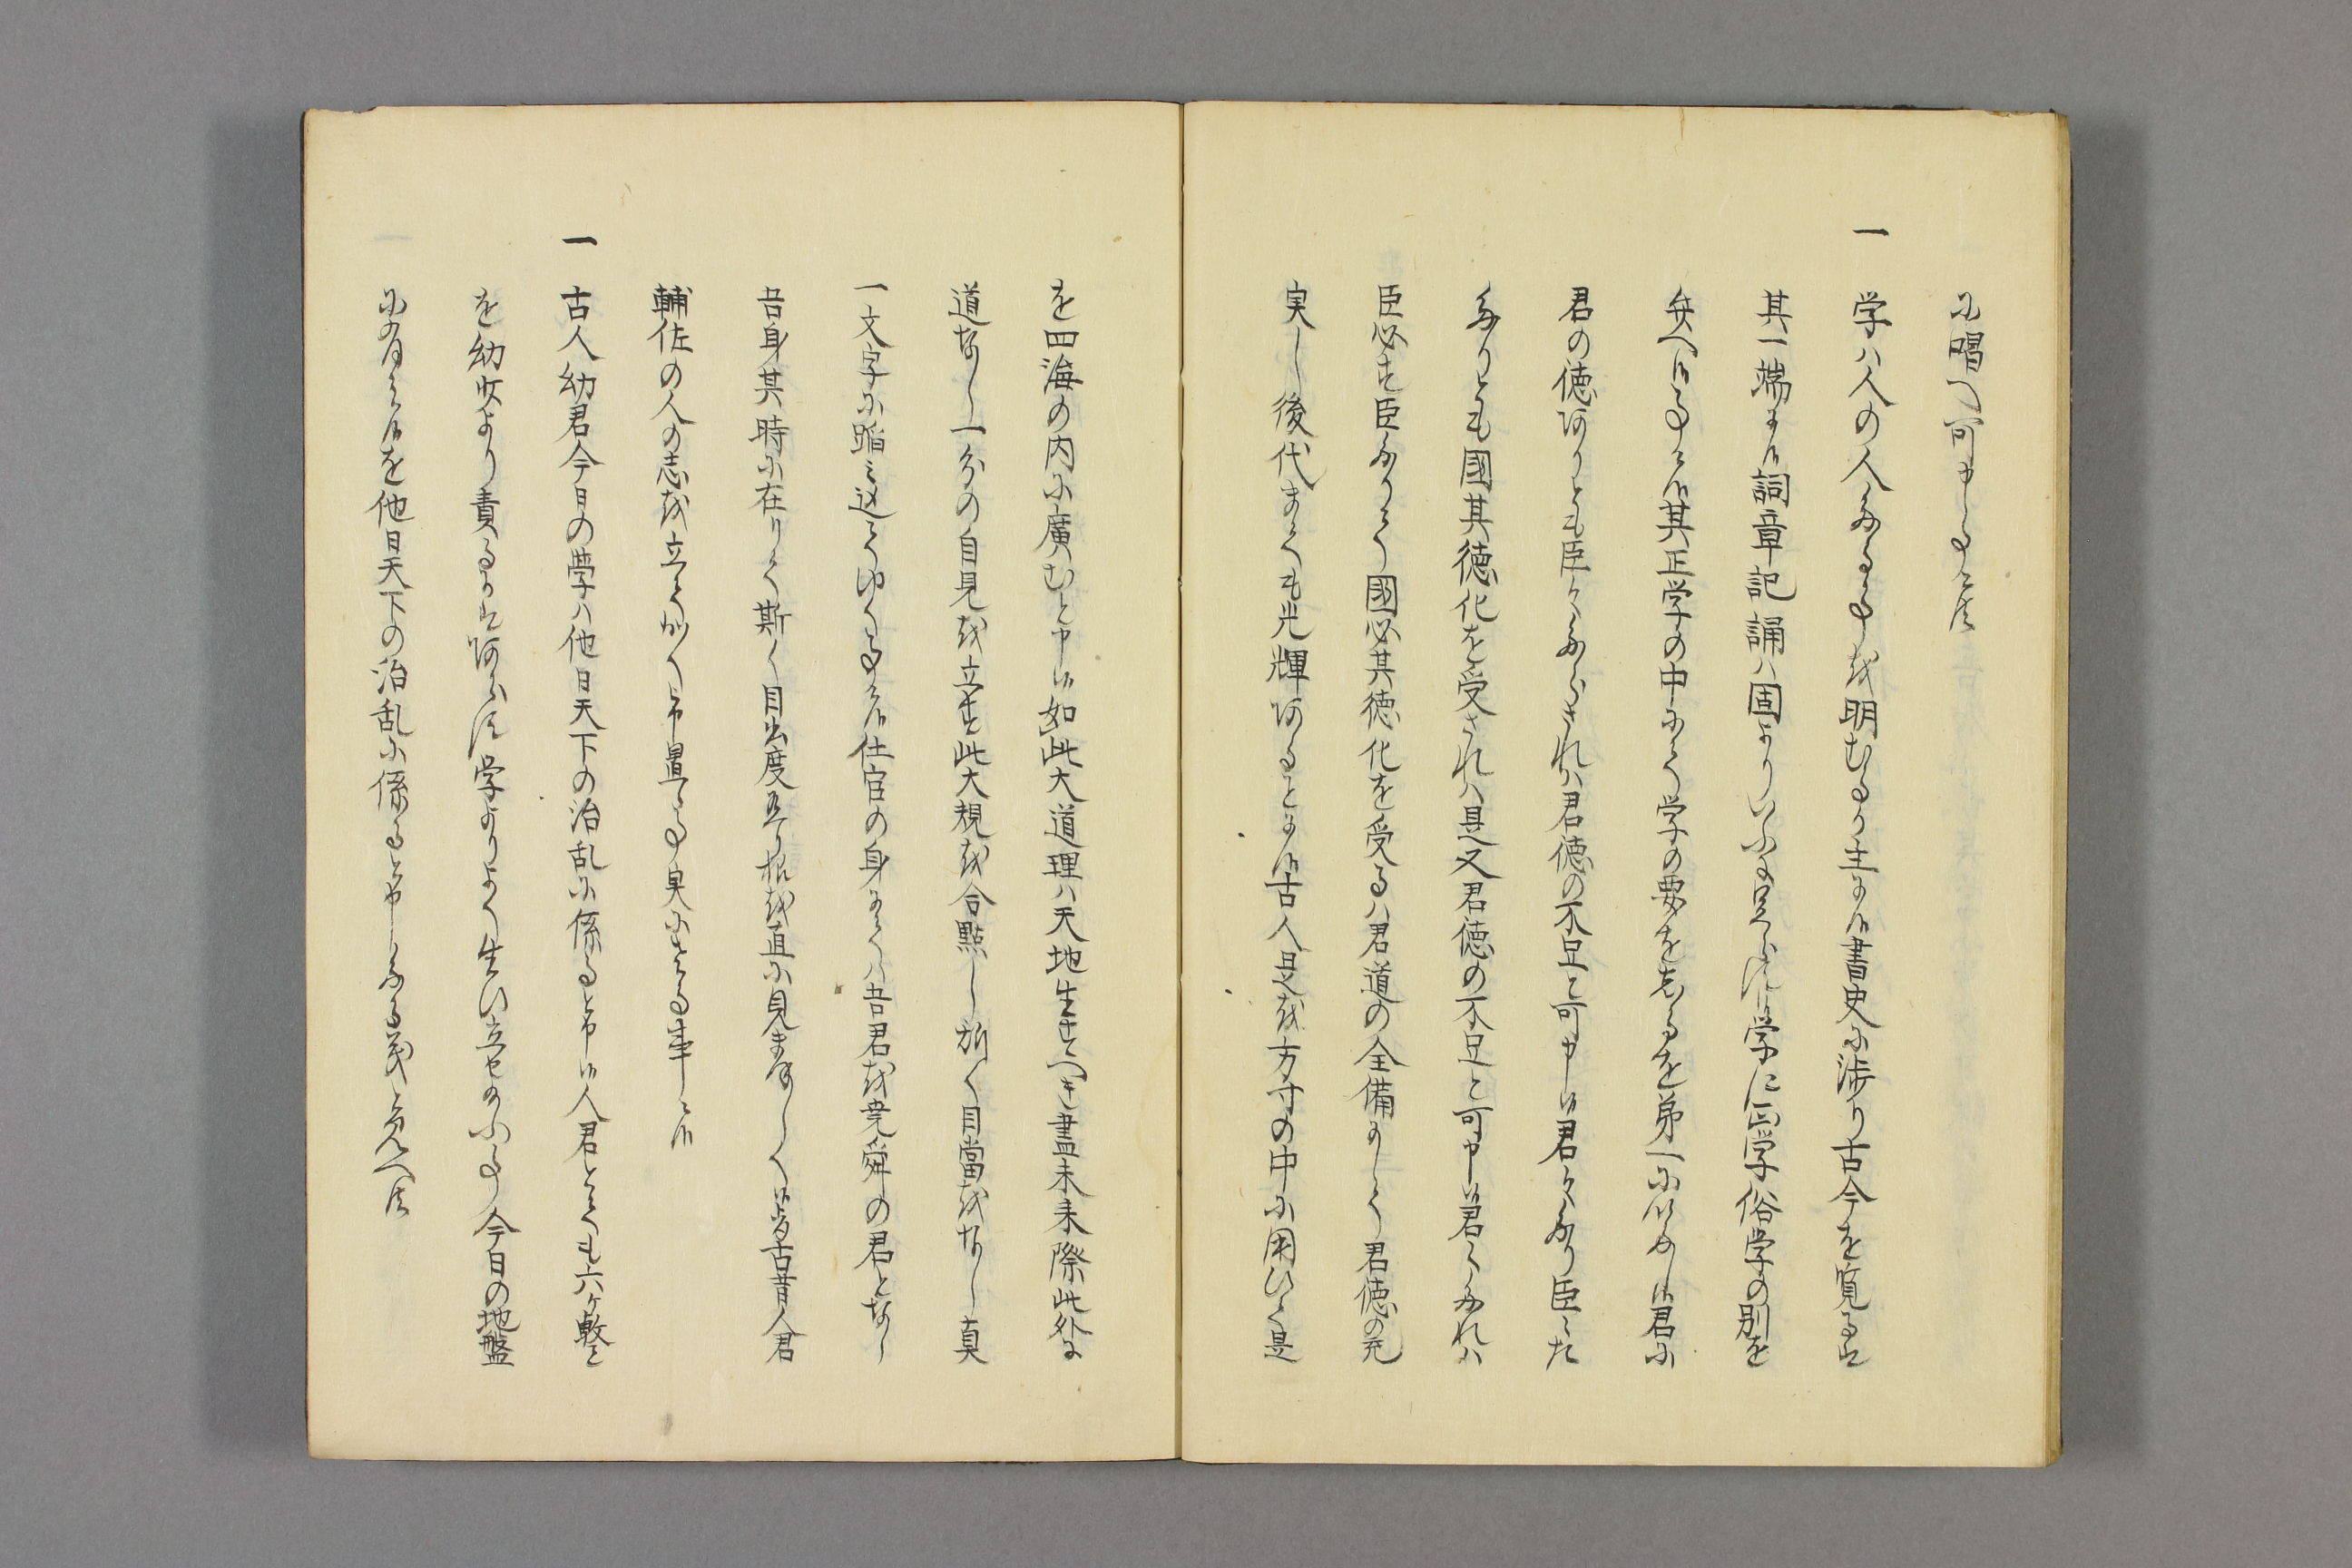 に唱へ可申事に候
一 学ハ人の人たる事を明むるか主にて書史に渉り古今を覧るは
其一端にて詞章記誦ハ固よりいふに足らす候学に正学俗学の別を
弁へ候事に候其正学の中にて学の要を志るを第一に以たし候君に
君の徳阿りとも臣々たらされハ君徳の不足と可申候君々たり臣々た
たりとも國其徳化を受されハ是又君徳の不足と可申候君々たれハ
臣必す臣たりて國必其徳化を受るハ君道の全備にして君徳の充
実し後代まても光輝阿ることにて古人是を方寸の中に用ひて是
を四海の内に廣むと申候如此大道理ハ天地生すへき盡未来際此外に
道なし一分の自見を立す此大規を合點し能く目當をなし真
一文字に踏み込てゆく事に候仕官の身にてハ吾君を堯舜の君となし
吾身其時に在りて斯く目出度 を直に見まほしく候皆古昔人君
輔佐の人の志を立て かく申置る事実にさる事に候
一 古人幼君今日の學ハ他日天下の治乱に係ると申候人君とても六ケ敷と
を幼少より責るは阿らす学よりよく生ひ立セ給ふ事今日の地盤
に有之候を他日天下の治乱に係ると申したる義と覚へ候